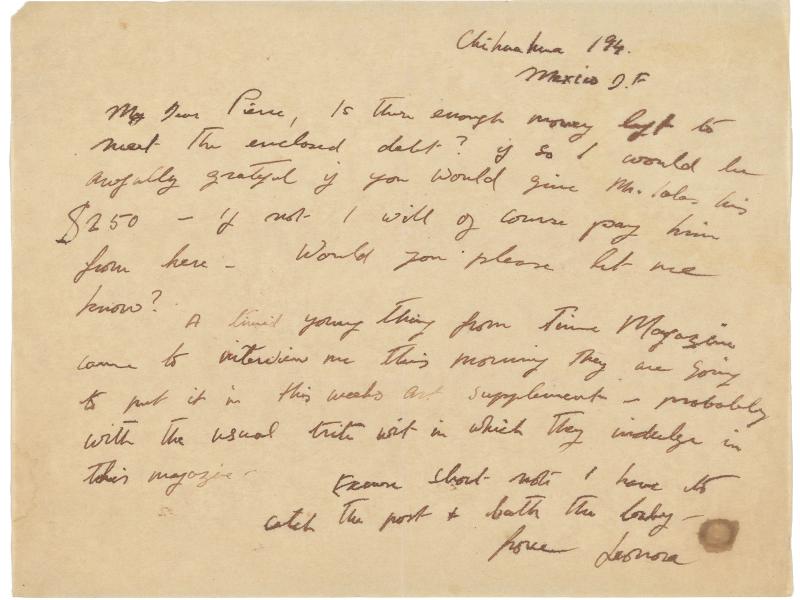 Chihuahua 194.
Mexico D.F
My Dear Pierre, Is there enough money left to
meet the enclosed debt? if so I would be
awfully grateful if you would give Mr. Iolas his
$250 – if not I will of course pay him
from here – Would you please let me
know?
A timid young thing from Time Magazine
came to interview me this morning they are going
to put it in this weeks art supplement – probably
with the usual trite wit in which they indulge in
this magazine –
Excuse short note I have to
catch the post & bath the baby –
Love Leonora